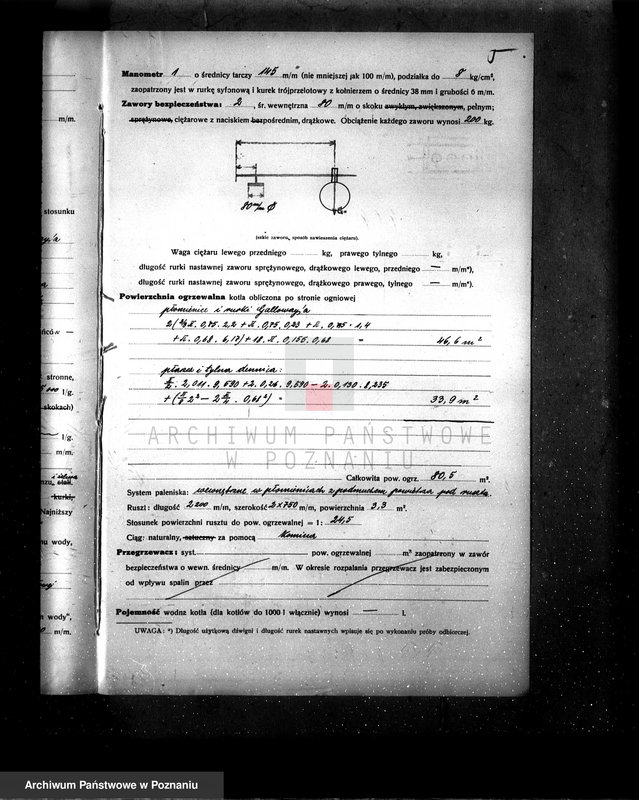 5
Manometr 1 o średnicy tarczy 145 m/m (nie mniejszej jak 100 m/m), podziałka do 8 kg/cm²,
zaopatrzony jest w rurkę syfonową i kurek trójprzelotowy z kołnierzem o średnicy 38 mm i grubości 6 m/m.
Zawory bezpieczeństwa: 2, śr. wewnętrzna 80 m/m o skoku zwykłym, zwiększonym, pełnym;
sprężynowe, ciężarowe z naciskiem bezpośrednim, drążkowe. Obciążenie każdego zaworu wynosi 200 kg.
80 m/m Ø
G
(szkic zaworu, sposób zawieszenia ciężaru).
Waga ciężaru lewego przedniego kg, prawego tylnego kg,
długość rurki nastawnej zaworu sprężynowego, drążkowego lewego, przedniego — m/m*),
długość rurki nastawnej zaworu sprężynowego, drążkowego prawego, tylnego — m/m*).
Powierzchnia ogrzewalna kotła obliczona po stronie ogniowej
płomienice i rurki Galloway'a
2(⅔π. 0,75. 2,2 + π. 0,75. 0,23 + π. 0,75. 1,4
+ π. 0,68. 6,17) + 18. π. 0,155. 0,68 = 46,6 m²
płaszcz i tylna dennica:
π/2. 2,011. 9,590 + 2. 0,26. 9,590 — 2. 0,130. 8,235
= 33,9 m²
ARCHIWUM PAŃSTWOWE
W POZNANIU
Całkowita pow. ogrz. 80,5 m².
System paleniska: wewnętrzne w płomienicach z podmuchem powietrza pod ruszta
Ruszt: długość 2200 m/m, szerokość 2×750 m/m, powierzchnia 3,3 m².
Stosunek powierzchni rusztu do pow. ogrzewalnej = 1: 24,5
Ciąg: naturalny, sztuczny za pomocą komina
Przegrzewacz: syst. pow. ogrzewalnej m² zaopatrzony w zawór
bezpieczeństwa o wewn. średnicy m/m. W okresie rozpalania przegrzewacz jest zabezpieczonym
od wpływu spalin przez
Pojemność wodna kotła (dla kotłów do 1000 l włącznie) wynosi — l.
UWAGA: *) Długość użytkową dźwigni i długość rurek nastawnych wpisuje się po wykonaniu próby odbiorczej.
m/m.
stosunku
stronne,
l/g.
skokach)
l/g.
m/m.
kurki,
Najniższy
wody,
wody",
m/m.
Archiwum Państwowe w Poznaniu